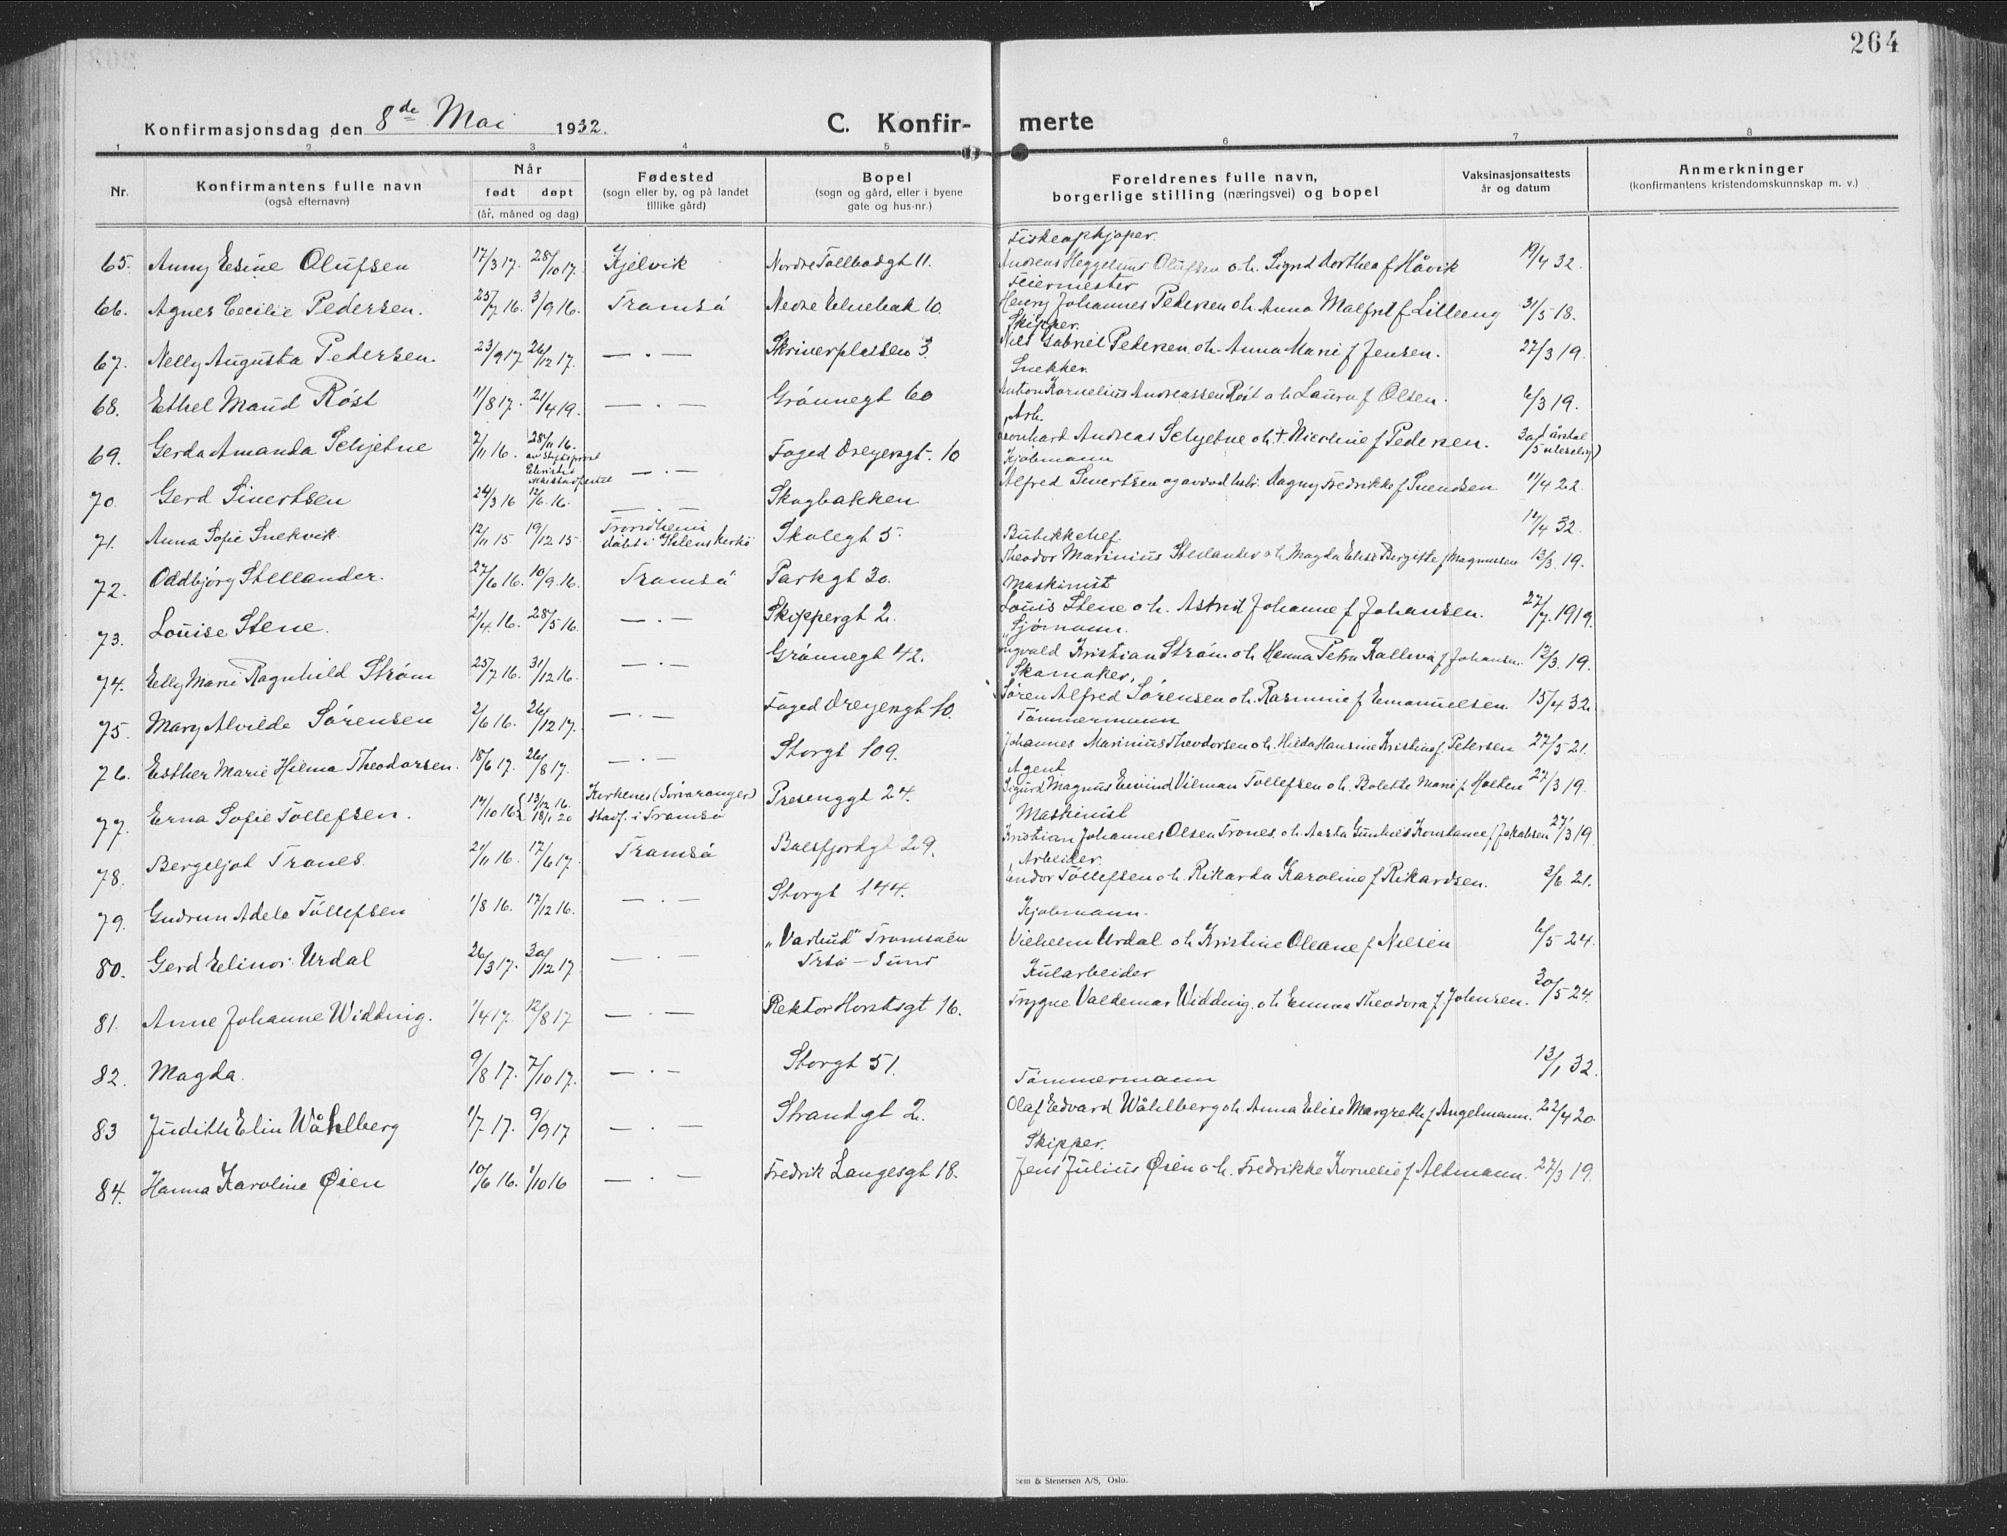 264
Konfirmasjonsdag den 8de Mai 1932. C. Konfir- merte
1 2 3 4 5 6 7 8
Nr. Konfirmantens fulle navn (også efternavn) Når født døpt (år, måned og dag) Fødested (sogn eller by, og på landet tillike gård) Bopel (sogn og gård, eller i byene gate og hus-nr.) Foreldrenes fulle navn, borgerlige stilling (næringsvei) og bopel Vaksinasjonsattests år og datum Anmerkninger (konfirmantens kristendomskunnskap m. v.)
Fiskeopkjøper.
65. Anny Esine Olufsen 17/3 17. 28/10 17. Kjelvik Nordre Tollbodgt 11. Andreas Heggelund Olufsen o.h. Sigrid Dorthea f Håvik 19/4 32.
Feiermester
66. Agnes Cecilie Pedersen. 25/7 16. 3/9 16. Tromsö Nedre Elvebak 10. Henry Johannes Pedersen o.h. Anna Malfrid f Lilleeng 31/5 18.
Skipper.
67. Nelly Augusta Pedersen. 23/9 17 26/12 17. — . — Skriverplassen 3. Nils Gabriel Pedersen o.h. Anna Marie f Jensen. 27/3 19.
Snekker.
68. Ethel Maud Röst 11/8 17. 21/4 19. — . — Grönnegt 60 Anton Kornelius Andreassen Röst o.h Laura f Olsen. 6/3 19.
Arb.
69. Gerda Amanda Schjetne 2/11 16. 28/11 16. — . — Foged Dreyersgt. 10 Leonhard Andreas Schjetne o.h. + Nicoline f Pedersen. 30/5 (årstal uleselig)
Kjöbmann
70. Gerd Sivertsen 24/3 16 12/6. 16. — . — Skogbakken Alfred Sivertsen og Dagny Fredrikke f Svendsen 11/4 22.
71. Anna Sofie Snekvik. 12/11 15 19/12 15 Trondheim Skolegt 5. 12/4 32.
72. Oddbjörg Stellander. 27/6 16. 10/9 16. Tromsö Parkgt 30. Theodor Marinius Stellander o.h. Magda Elise Bergitte f Magnussen 13/3. 19.
Maskinist
73. Louise Stene. 2/4. 16. 28/5 16. — . — Skippergt 2. Louis Stene o.h. Astrid Johanne f Johansen. 27/7. 1919.
Sjømann.
74. Elly Marie Ragnhild Strøm 25/7 16. 31/12 16. — . — Grönnegt 42. Kristian Strøm o.h. Hanna Petra f Johansen. 13/3. 19.
Skomaker,
75. Mary Alvilde Sörensen 2/6 16. 26/12 17. — . — Foged Dreyersgt 10. Sören Alfred Sörensen o.h. Rasmine f Emanuelsen. 15/4 32.
Tömmermann
76. Esther Marie Hilma Theodorsen. 18/6 17. 26/8 17. — . — Storgt 109. Johannes Marinius Theodorsen o.h. Hilda Hansine Kristine f. Petersen 27/5 21.
Agent
77. Erna Sofie Tollefsen. 14/10 16 { 13/12 16. 18/1 20 Kirkenes (Sörvaranger) stadf. i Tromsö Presenggt 24. Sigurd Magnus Eivind Vilman Tollefsen o.h. Bolette Marie f Holten 27/3 19.
Maskinist
78. Bergeljot Trones. 21/11 16. 17/6 17. Tromsö Balsfjordgt 29. Kristian Johannes Olsen Trones, o.h. Aasta Gunhild Konstance f Jakobsen 27/3 19
Arbeider.
79. Gudrun Adele Tollefsen 1/8 16. 17/12 16. — . — Storgt 144. Endor Tollefsen o.h. Rikarda Karoline f Rikardsen. 2/6. 21.
Kjöbmann.
80. Gerd Elinor Urdal 26/3 17. 30/12 17 — . — "Varbud" Tromsöen Trsö – Sund Vilhelm Urdal o.h Kristine Oleane f Nilsen 6/5 24.
Kularbeider
81. Anne Johanne Widding. 1/4 17. 12/8 17 — . — Rektor Horstsgt 16. Trygve Valdemar Widding. o.h Emma Theodora f. Johnsen. 30/5 24.
82. Magda. 9/8 17. 7/10 17. — . — Storgt 51. 13/1 32.
Tömmermann
83 Judith Elin Wåhlberg 1/7 17. 9/9 17 — . — Strandgt 2. Olaf Edvard Wåhlberg o.h. Anna Elise Margreth f Angelmann. 22/4 20.
Skipper.
84. Hanna Karoline Øien 10/6 16. 1/10 16 — . — Fredrik Langesgt 18. Jens Julius Øien o.h. Fredrikke Kornelie f Altmann. 27/3 19.
Sem & Stenersen A/S, Oslo.